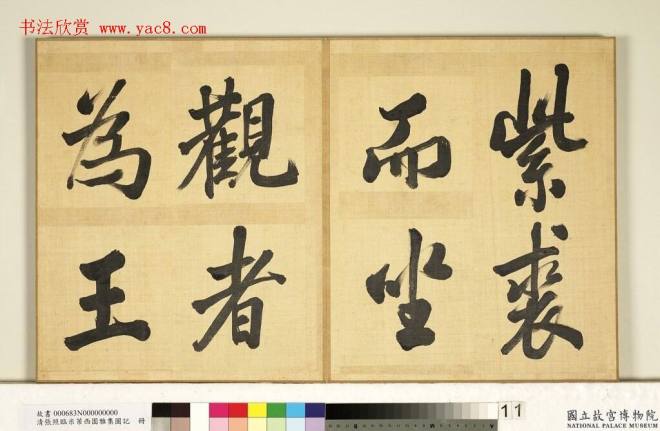 书法欣赏 www.yac8.com
紫裘
而坐
觀者
為王
故書 000683N000000000
清張照臨米芾西園雅集圖記 冊
11
國立故宮博物院
NATIONAL PALACE MUSEUM